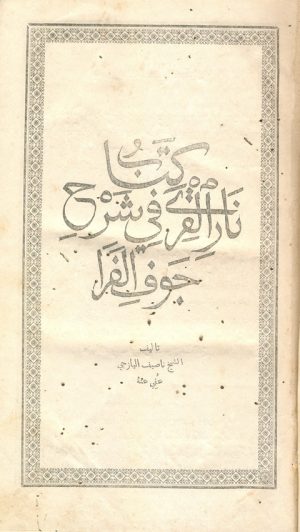 كتاب
نار القرى في شرح
جوف الفرا
تاليف
الشيخ ناصيف اليازجي
عُفي عنهُ